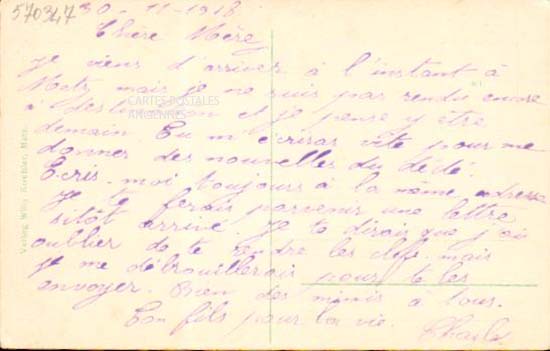 570347
30-11-1918
Chère Mère
Je viens d'arriver à l'instant à
Metz mais je ne suis pas rendu encore
à destination et je pense y être
demain. Tu m'écriras vite pour me
donner des nouvelles du dédé.
Ecris-moi toujours à la même adresse
Je te ferais parvenir une lettre
sitôt arrivé. Je te dirais que j'ai
oublier de te rendre les clefs mais
je me débrouillerais pour te les
envoyer. Bien des mimis à tous.
Ton fils pour la vie.
Charles
CARTES POSTALES
ANCIENNES
Verlag Willy Koechler, Metz.